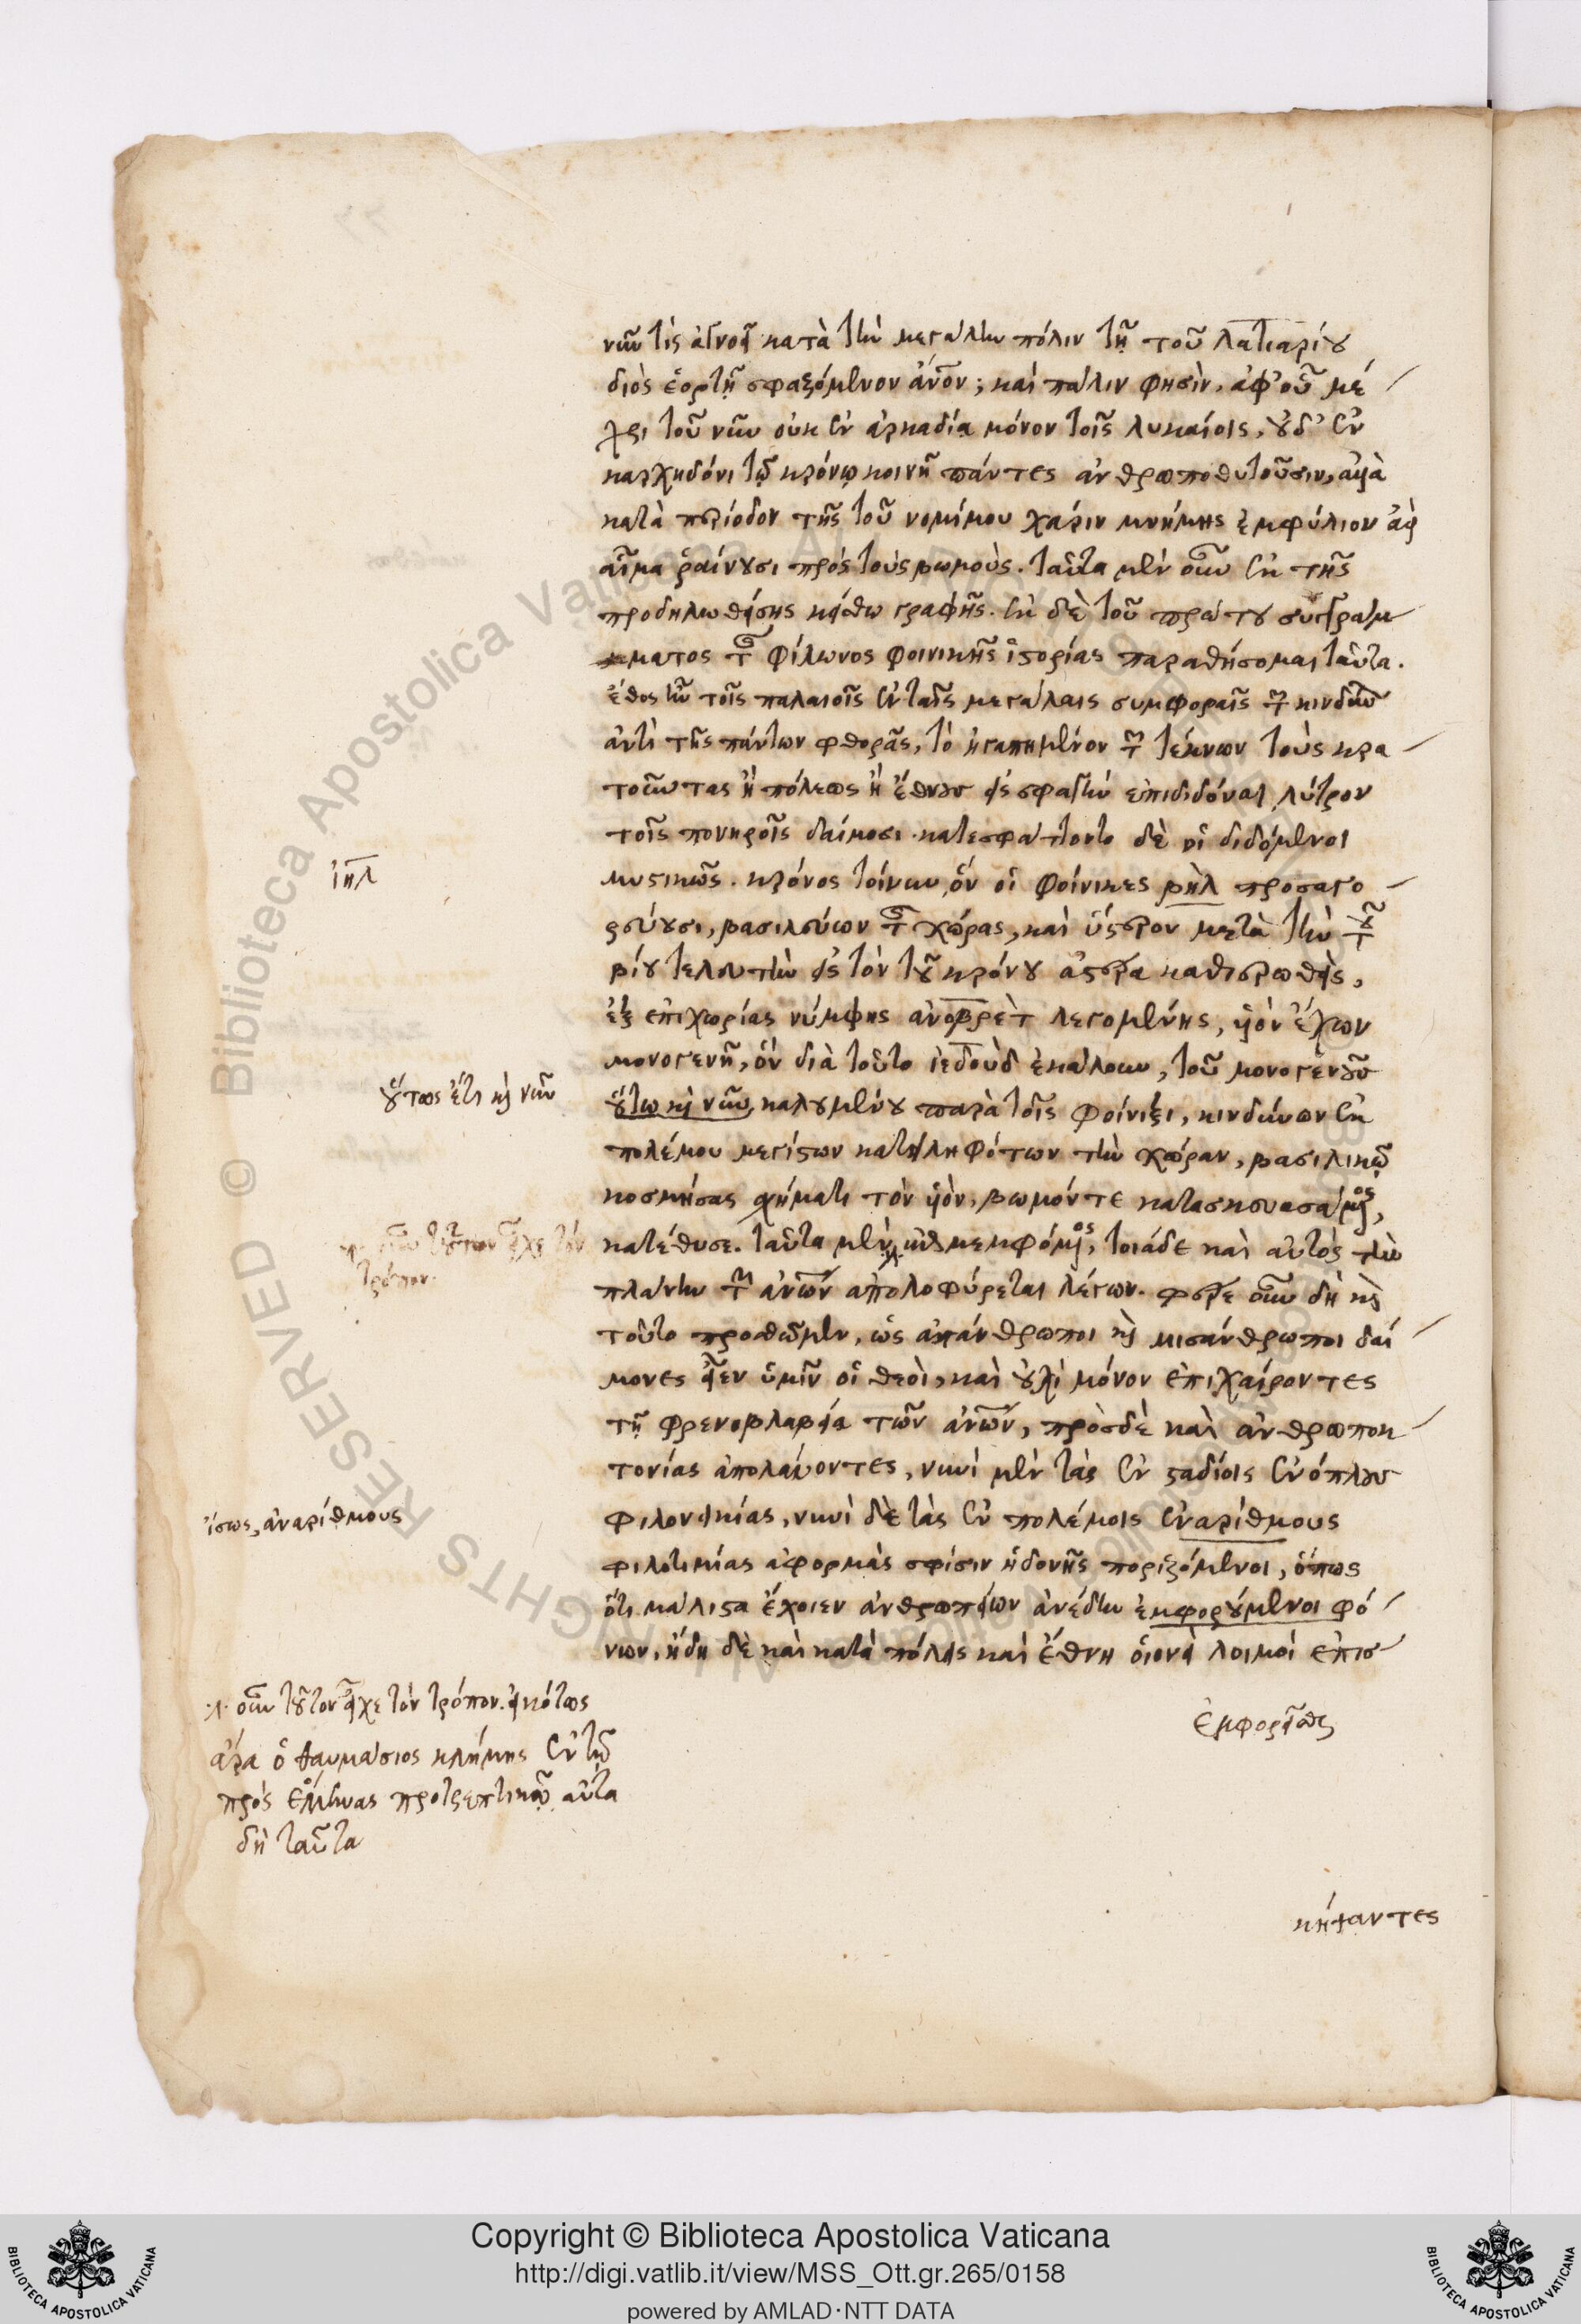 νῦν τίς ἀγνοεῖ κατὰ τὴν μεγάλην πόλιν τῇ τοῦ Λατιαρίου
διὸς ἑορτῇ σφαζόμενον ἄνον; καὶ πάλιν φησὶν, ἀφ' οὗ μέ
χρι τοῦ νῦν οὐκ ἐν ἀρκαδίᾳ μόνον τοῖς λυκαίοις, οὐδ' ἐν
καρχηδόνι τῷ κρόνῳ κοινῇ πάντες ἀνθρωποθυτοῦσιν, ἀλλὰ
κατὰ περίοδον τῆς τοῦ νομίμου χάριν μνήμης ἐμφύλιον ἀεὶ
αἷμα ῥαίνουσι πρὸς τοὺς βωμούς. ταῦτα μὲν οὖν ἐκ τῆς
προδηλωθείσης κείσθω γραφῆς. ἐκ δὲ τοῦ πρώτου συγγράμ
ματος τῆς Φίλωνος φοινικῆς ἱστορίας παραθήσομαι ταῦτα.
ἔθος ἦν τοῖς παλαιοῖς ἐν ταῖς μεγάλαις συμφοραῖς τῶν κινδύνων
ἀντὶ τῆς πάντων φθορᾶς, τὸ ἠγαπημένον τῶν τέκνων τοὺς κρα
τοῦντας ἢ πόλεως ἢ ἔθνους εἰς σφαγὴν ἐπιδιδόναι λύτρον
τοῖς πονηροῖς δαίμοσι. κατεσφάττοντο δὲ οἱ διδόμενοι
μυστικῶς. κρόνος τοίνυν, ὃν οἱ φοίνικες βὴλ προσαγο
ρεύουσι, βασιλεύων τῆς χώρας, καὶ ὕστερον μετὰ τὴν τοῦ
βίου τελευτὴν εἰς τὸν τοῦ κρόνου ἀστέρα καθιερωθεὶς,
ἐξ ἐπιχωρίας νύμφης ἀνοβρὲτ λεγομένης, υἱὸν ἔχων
μονογενῆ, ὃν διὰ τοῦτο ἰεδοὺδ ἐκάλουν, τοῦ μονογενοῦς
οὕτω καὶ νῦν καλουμένου παρὰ τοῖς φοίνιξι, κινδύνων ἐκ
πολέμου μεγίστων κατειληφότων τὴν χώραν, βασιλικῷ
κοσμήσας σχήματι τὸν υἱὸν, βωμόν τε κατασκευασάμενος,
κατέθυσε. ταῦτα μὲν μεμφόμενος, τοιάδε καὶ αὐτὸς τὴν
πλάνην τῶν ἀνῶν ἀπολοφύρεται λέγων. φέρε οὖν δὴ καὶ
τοῦτο προσθῶμεν, ὡς ἀπάνθρωποι καὶ μισάνθρωποι δαί
μονες εἶεν ὑμῖν οἱ θεοὶ, καὶ οὐχὶ μόνον ἐπιχαίροντες
τῇ φρενοβλαβείᾳ τῶν ἀνῶν, πρὸσδὲ καὶ ἀνθρωποκ
τονίας ἀπολαύοντες, νυνὶ μὲν τὰς ἐν σταδίοις ἐνόπλους
φιλονεικίας, νυνὶ δὲ τὰς ἐν πολέμοις ἐναρίθμους
φιλοτιμίας ἀφορμὰς σφίσιν ἡδονῆς ποριζόμενοι, ὅπως
ὅτι μάλιστα ἔχοιεν ἀνθρωπείων ἀνέδην ἐμφορούμενοι φό
νων, ἤδη δὲ καὶ κατὰ πόλεις καὶ ἔθνη οἱονεὶ λοιμοὶ ἐπισ
ἰηλ
οὕτως ἔτι καὶ νῦν
οὖν τοῦτον εἶχε τὸν
τρόπον.
ἴσως, ἀναρίθμους
οὖν τοῦτον εἶχε τὸν τρόπον. εἰκότως
ἄρα ὁ θαυμάσιος κλήμης ἐν τῷ
πρὸς ἕλληνας προτρεπτικῷ αὐτὰ
δὴ ταῦτα
ἐμφορεῖσθαι
κήψαντες
Copyright © Biblioteca Apostolica Vaticana
http://digi.vatlib.it/view/MSS_Ott.gr.265/0158
powered by AMLAD·NTT DATA
BIBLIOTECA APOSTOLICA VATICANA
BIBLIOTECA APOSTOLICA VATICANA